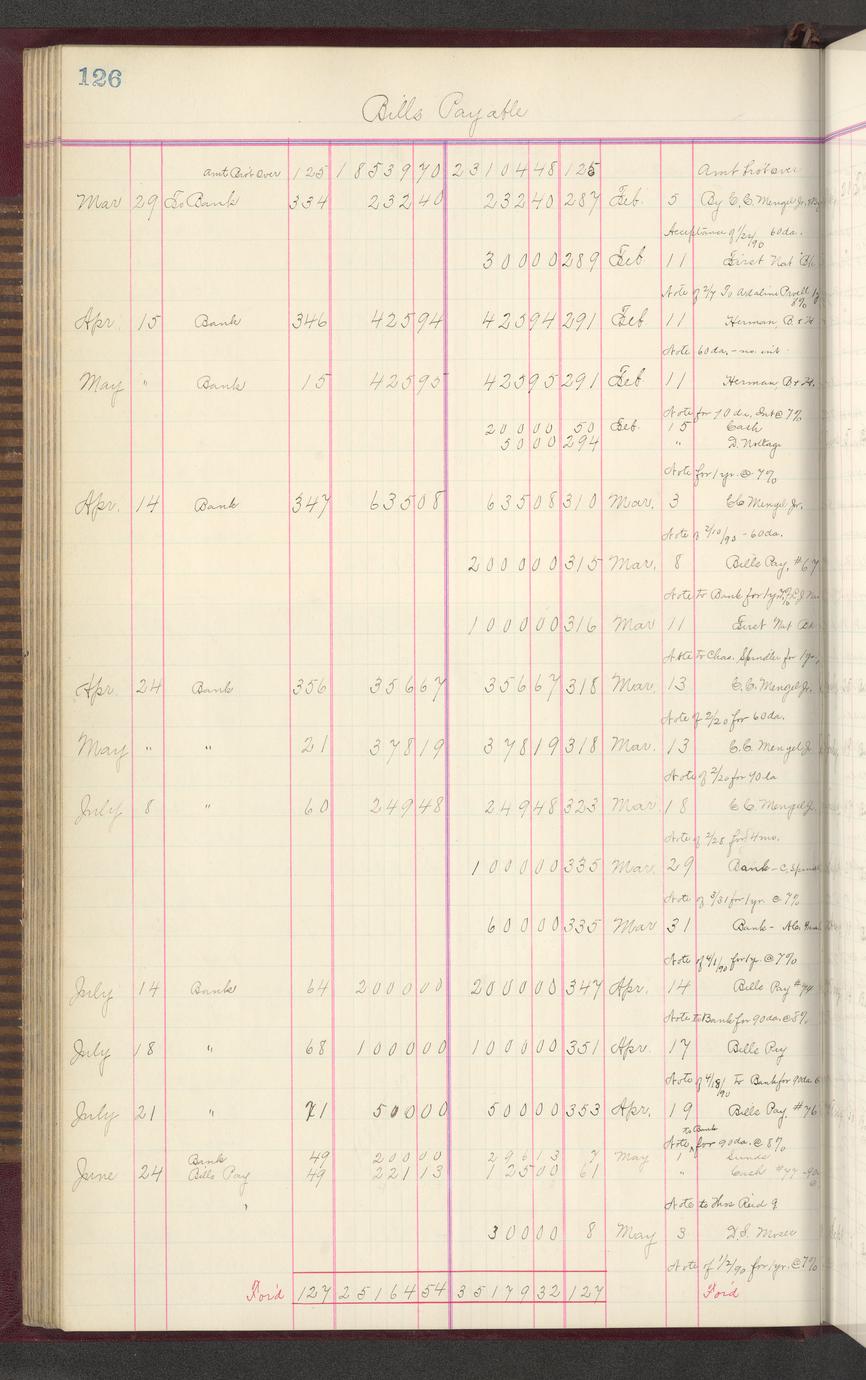 126
Bills Payable
Amt Brot Over 125 18539 70 23104 48 125 Amt brot over
Mar 29 To Bank 334 232 40 232 40 287 Feb. 5 By C.C. Mengel Jr.
Acceptance of 1/22/90 60da.
300 00 289 Feb 11 First Nat Bk
Note of 2/7 To
Apr. 15 Bank 346 425 94 425 94 291 Feb 11 Herman, B. & H.
Note 60da. - no int.
May " Bank 15 425 95 425 95 291 Feb 11 Herman, B & H.
Note for 70 da. Int @ 7%
200 00 50 Feb. 15 Cash
50 00 294 " D. Noltage
Note for 1 yr. @ 7%
Apr. 14 Bank 347 635 08 635 08 310 Mar. 3 CC Mengel Jr.
Note of 2/10/90 - 60da.
2000 00 315 Mar. 8 Bills Pay. #67
Note to Bank for 1 yr
1000 00 316 Mar 11 First Nat Bk
Note to Chas. Spindler for 1 yr.
Apr 24 Bank 356 356 67 356 67 318 Mar. 13 C.C. Mengel Jr.
Note of 2/20 for 60da.
May " " 21 378 19 378 19 318 Mar. 13 C.C. Mengel Jr
Note of 2/20 for 90 da
July 8 " 60 249 48 249 48 323 Mar 18 CC Mengel Jr.
Note of 2/28 for 4 mo.
1000 00 335 Mar. 29 Bank - C. Spind
Note of 3/31 for 1 yr. @ 7%
600 00 335 Mar 31 Bank -
Note of 4/1/90 for 1 yr. @ 7%
July 14 Bank 64 2000 00 2000 00 347 Apr. 14 Bills Pay #74
Note to Bank for 90 da. @ 8%
July 18 " 68 1000 00 1000 00 351 Apr. 17 Bills Pay
Note of 4/18/90 To Bank for 90da
July 21 " 71 500 00 500 00 353 Apr. 19 Bills Pay. #76
to Bank
Note for 90 da. @ 8%
Bank 49 200 00 296 13 7 May 1 Sunds
June 24 Bills Pay 49 221 13 125 00 61 " Cash #77
Note to Thos Reid
300 00 8 May 3 D.S. Moser
Note of 1/2/90 for 1 yr. @ 7%
For'd 127 25164 54 35179 32 127 For'd